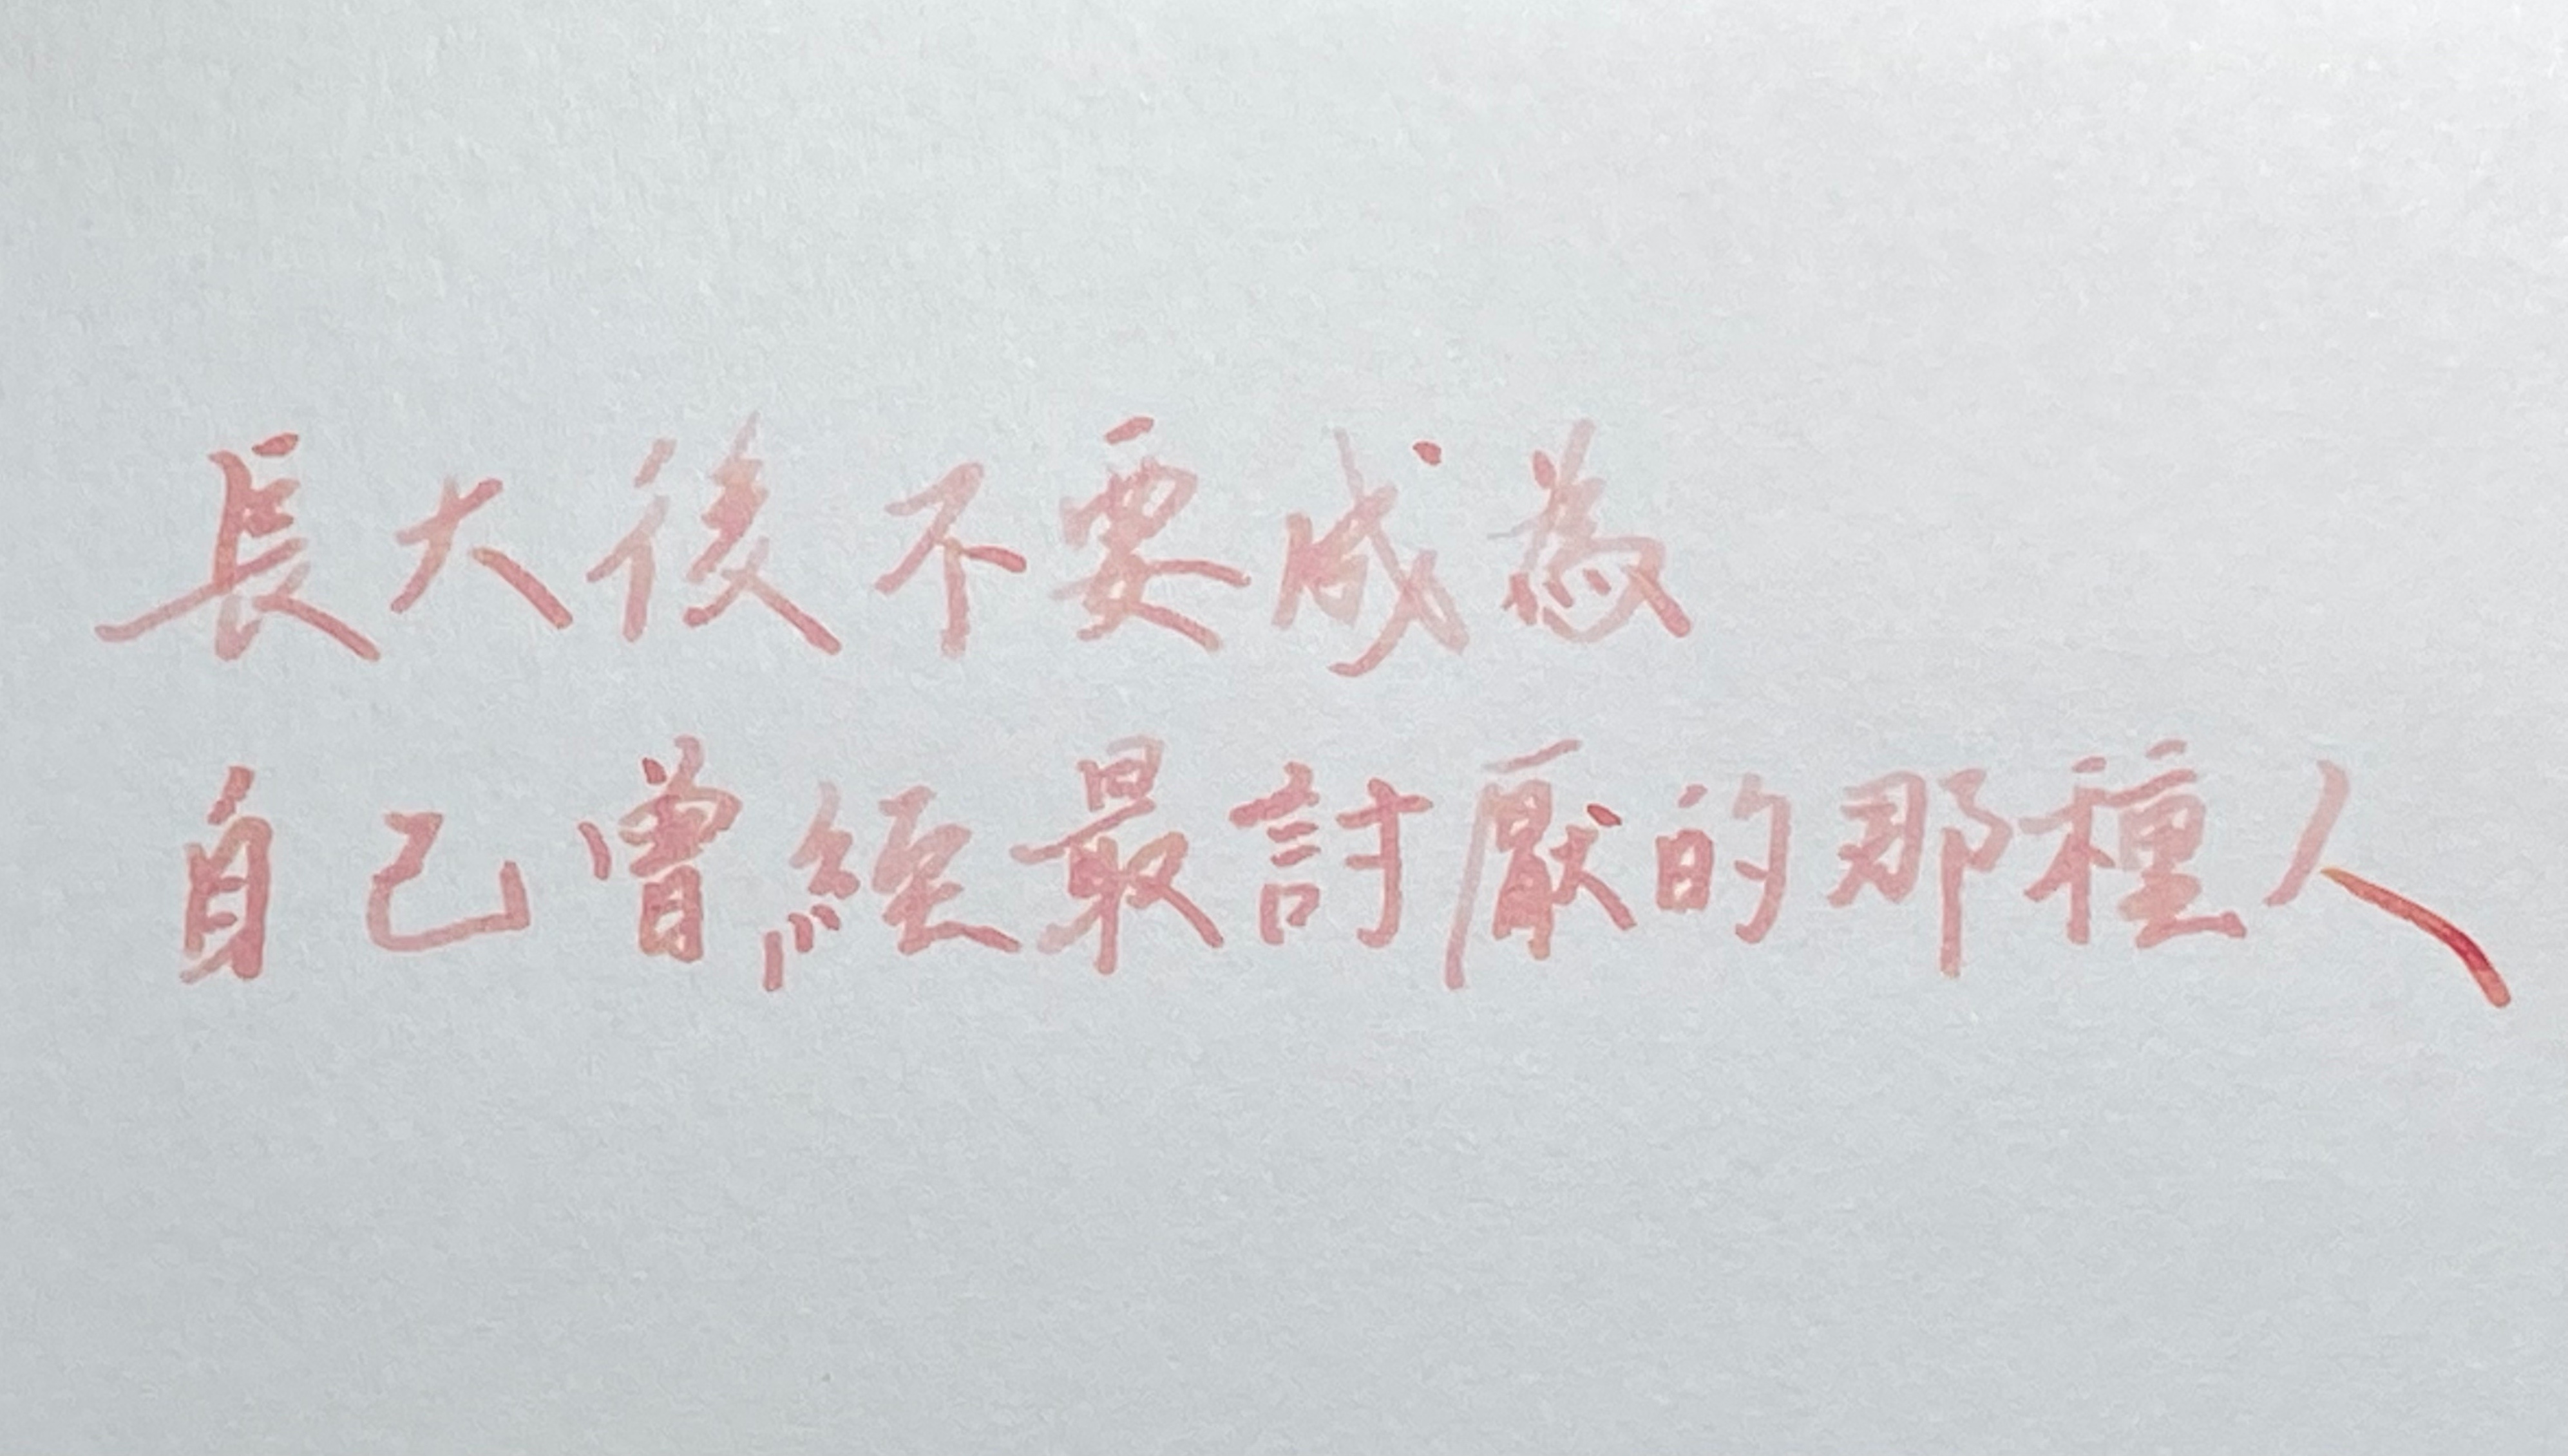 長大後不要成為
自己曾經最討厭的那種人